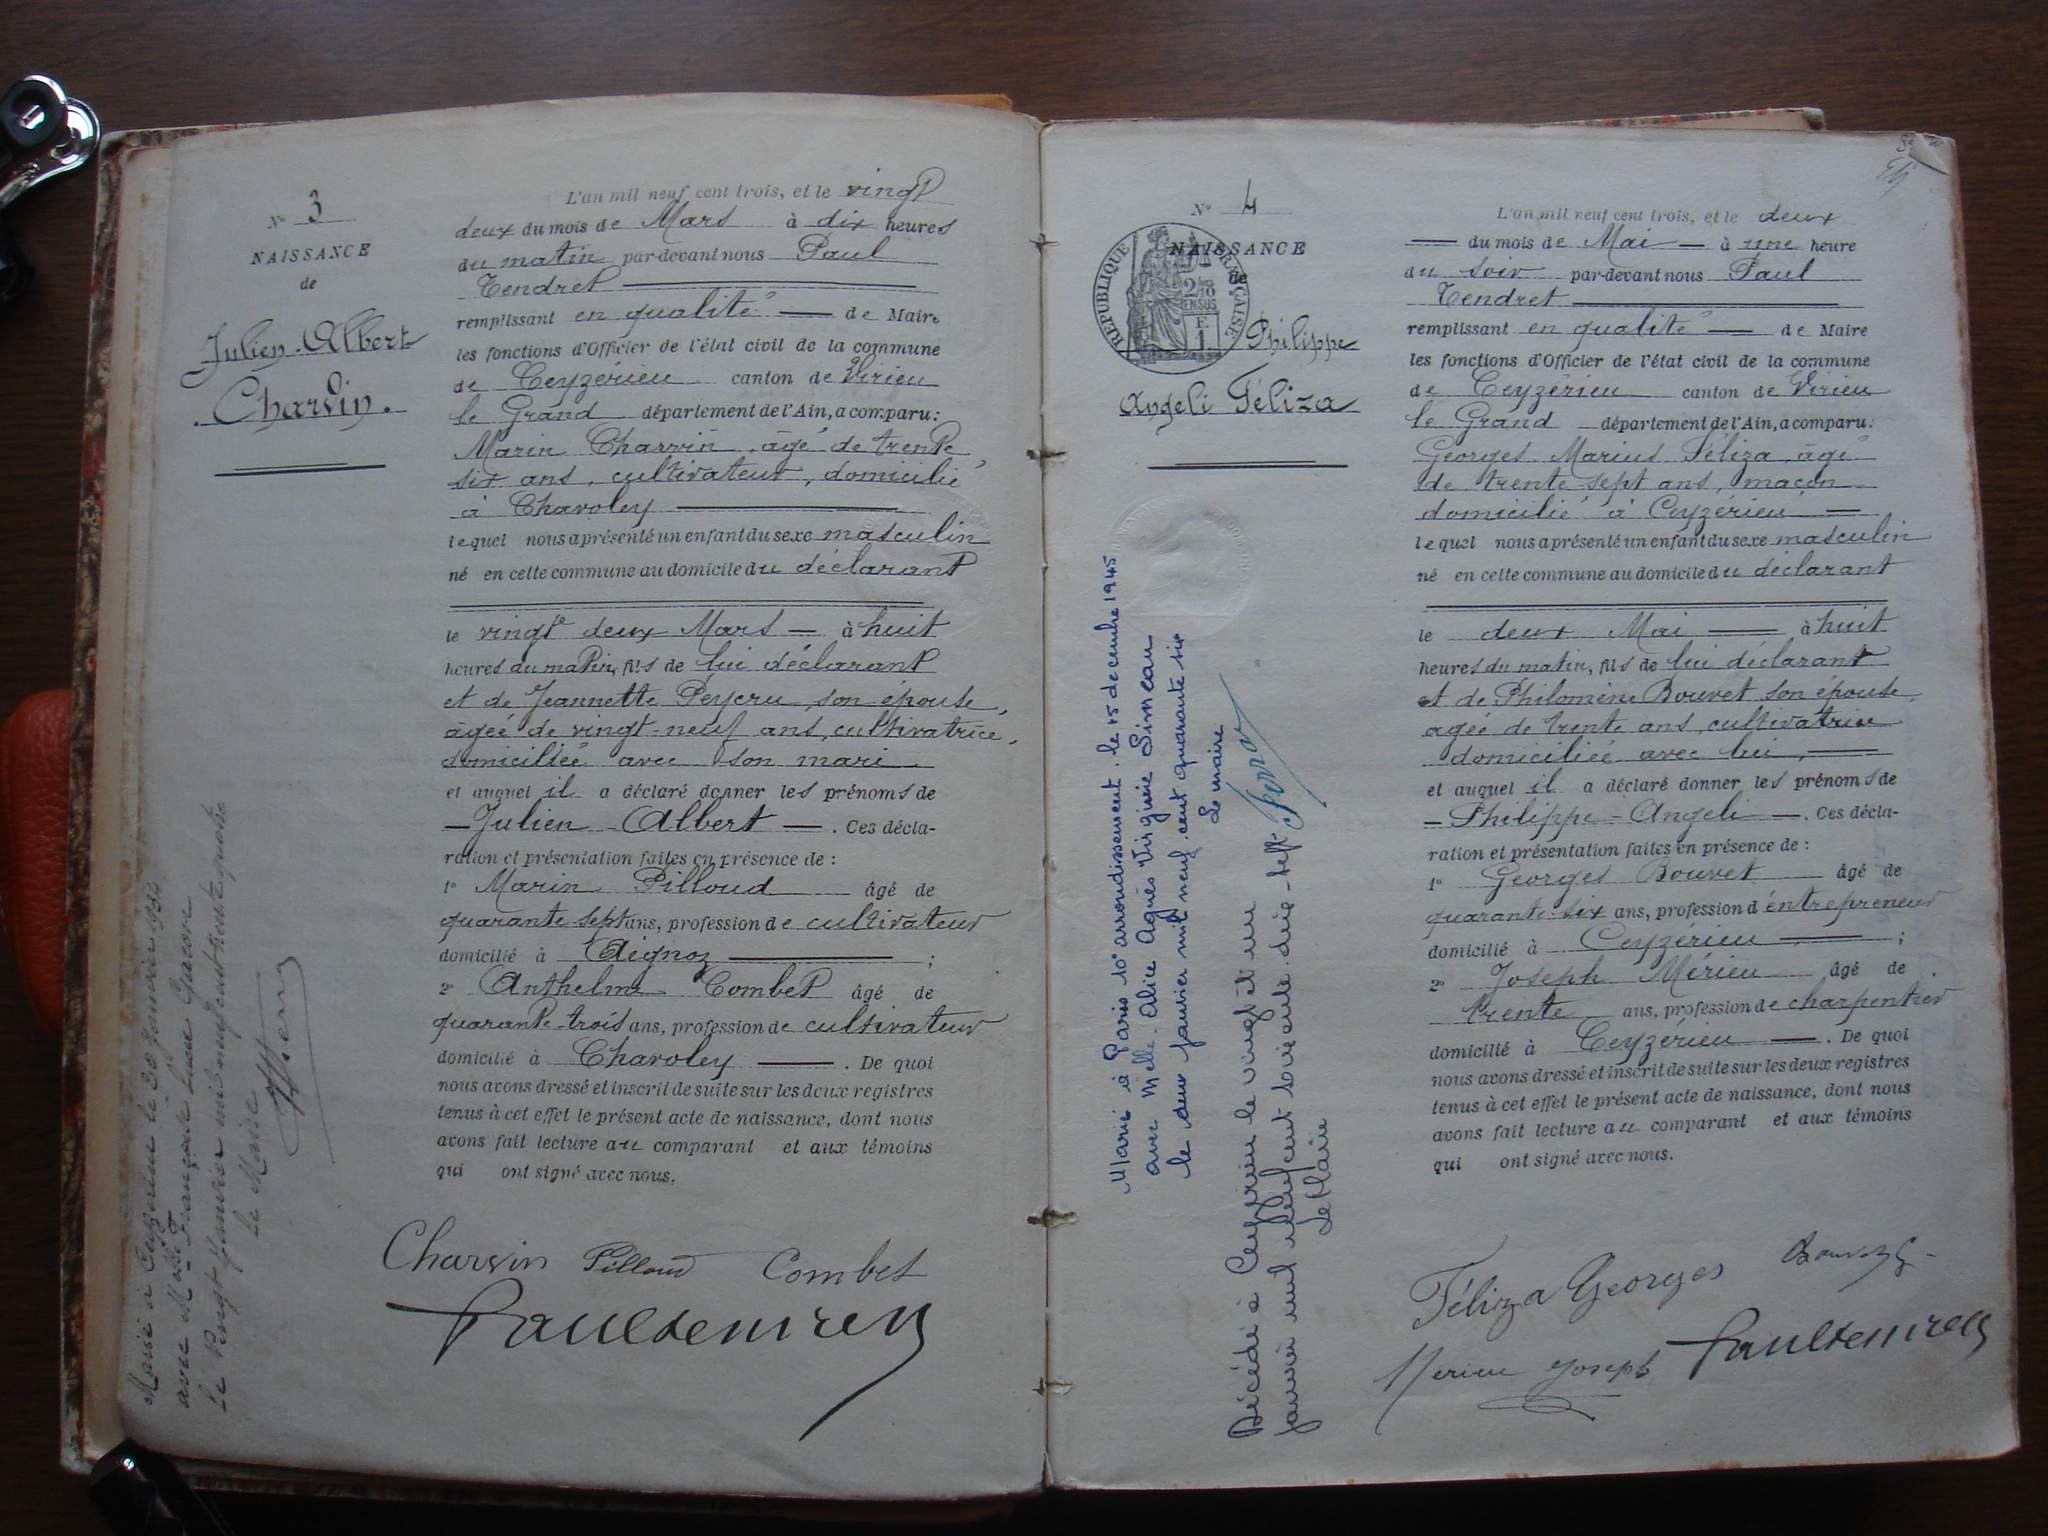 N° 3
NAISSANCE
de
Julien-Albert
Charvin.
L'an mil neuf cent trois, et le vingt
deux du mois de Mars à dix heures
du matin par-devant nous Paul
Tendret
remplissant en qualité de Maire
les fonctions d'Officier de l'état civil de la commune
de Ceyzérieu canton de Virieu
le Grand département de l'Ain, a comparu:
Marin Charvin, âgé de trente
six ans, cultivateur, domicilié
à Chavoley
lequel nous a présenté un enfant du sexe masculin
né en cette commune au domicile du déclarant
le vingt deux Mars à huit
heures du matin, fils de lui déclarant
et de Jeannette Peycru, son épouse,
âgée de vingt-neuf ans, cultivatrice,
domiciliée avec son mari
et auquel il a déclaré donner les prénoms de
Julien-Albert. Ces décla-
ration et présentation faites en présence de :
1° Marin Pilloud âgé de
quarante-sept ans, profession de cultivateur
domicilié à Aignoz ;
2° Anthelme Combet âgé de
quarante-trois ans, profession de cultivateur
domicilié à Chavoley. De quoi
nous avons dressé et inscrit de suite sur les deux registres
tenus à cet effet le présent acte de naissance, dont nous
avons fait lecture au comparant et aux témoins
qui ont signé avec nous.
Charvin Pilloud Combet
Paul Tendret
Marié à Ceyzérieu le 20 Janvier 1934
avec Mlle Françoise Gacon
Le Vingt Janvier mil neuf cent trente quatre
Le Maire
N° 4
NAISSANCE
de
RÉPUBLIQUE FRANÇAISE
Philippe
Angeli Féliza
L'an mil neuf cent trois, et le deux
du mois de Mai à une heure
du soir par-devant nous Paul
Tendret
remplissant en qualité de Maire
les fonctions d'Officier de l'état civil de la commune
de Ceyzérieu canton de Virieu
le Grand département de l'Ain, a comparu:
Georges Marius Féliza, âgé
de trente sept ans, maçon
domicilié à Ceyzérieu
lequel nous a présenté un enfant du sexe masculin
né en cette commune au domicile du déclarant
le deux Mai à huit
heures du matin, fils de lui déclarant
et de Philomène Bouvet son épouse
agée de trente ans, cultivatrice
domiciliée avec lui,
et auquel il a déclaré donner les prénoms de
Philippe-Angeli. Ces décla-
ration et présentation faites en présence de :
1° Georges Bouvet âgé de
quarante-six ans, profession d'entrepreneur
domicilié à Ceyzérieu ;
2° Joseph Mérieu âgé de
trente ans, profession de charpentier
domicilié à Ceyzérieu. De quoi
nous avons dressé et inscrit de suite sur les deux registres
tenus à cet effet le présent acte de naissance, dont nous
avons fait lecture au comparant et aux témoins
qui ont signé avec nous.
Féliza Georges Bouvet G.
Merieu Joseph Paul Tendret
Marié à Paris 10° arrondissement, le 15 decembre 1945
avec Melle Alice Agnès Virginie Simeau
le deux janvier mil neuf cent quarante six
Le maire
Décédé à Ceyzérieu le vingt et un
janvier mil neuf cent soixante-dix-sept
Le Maire